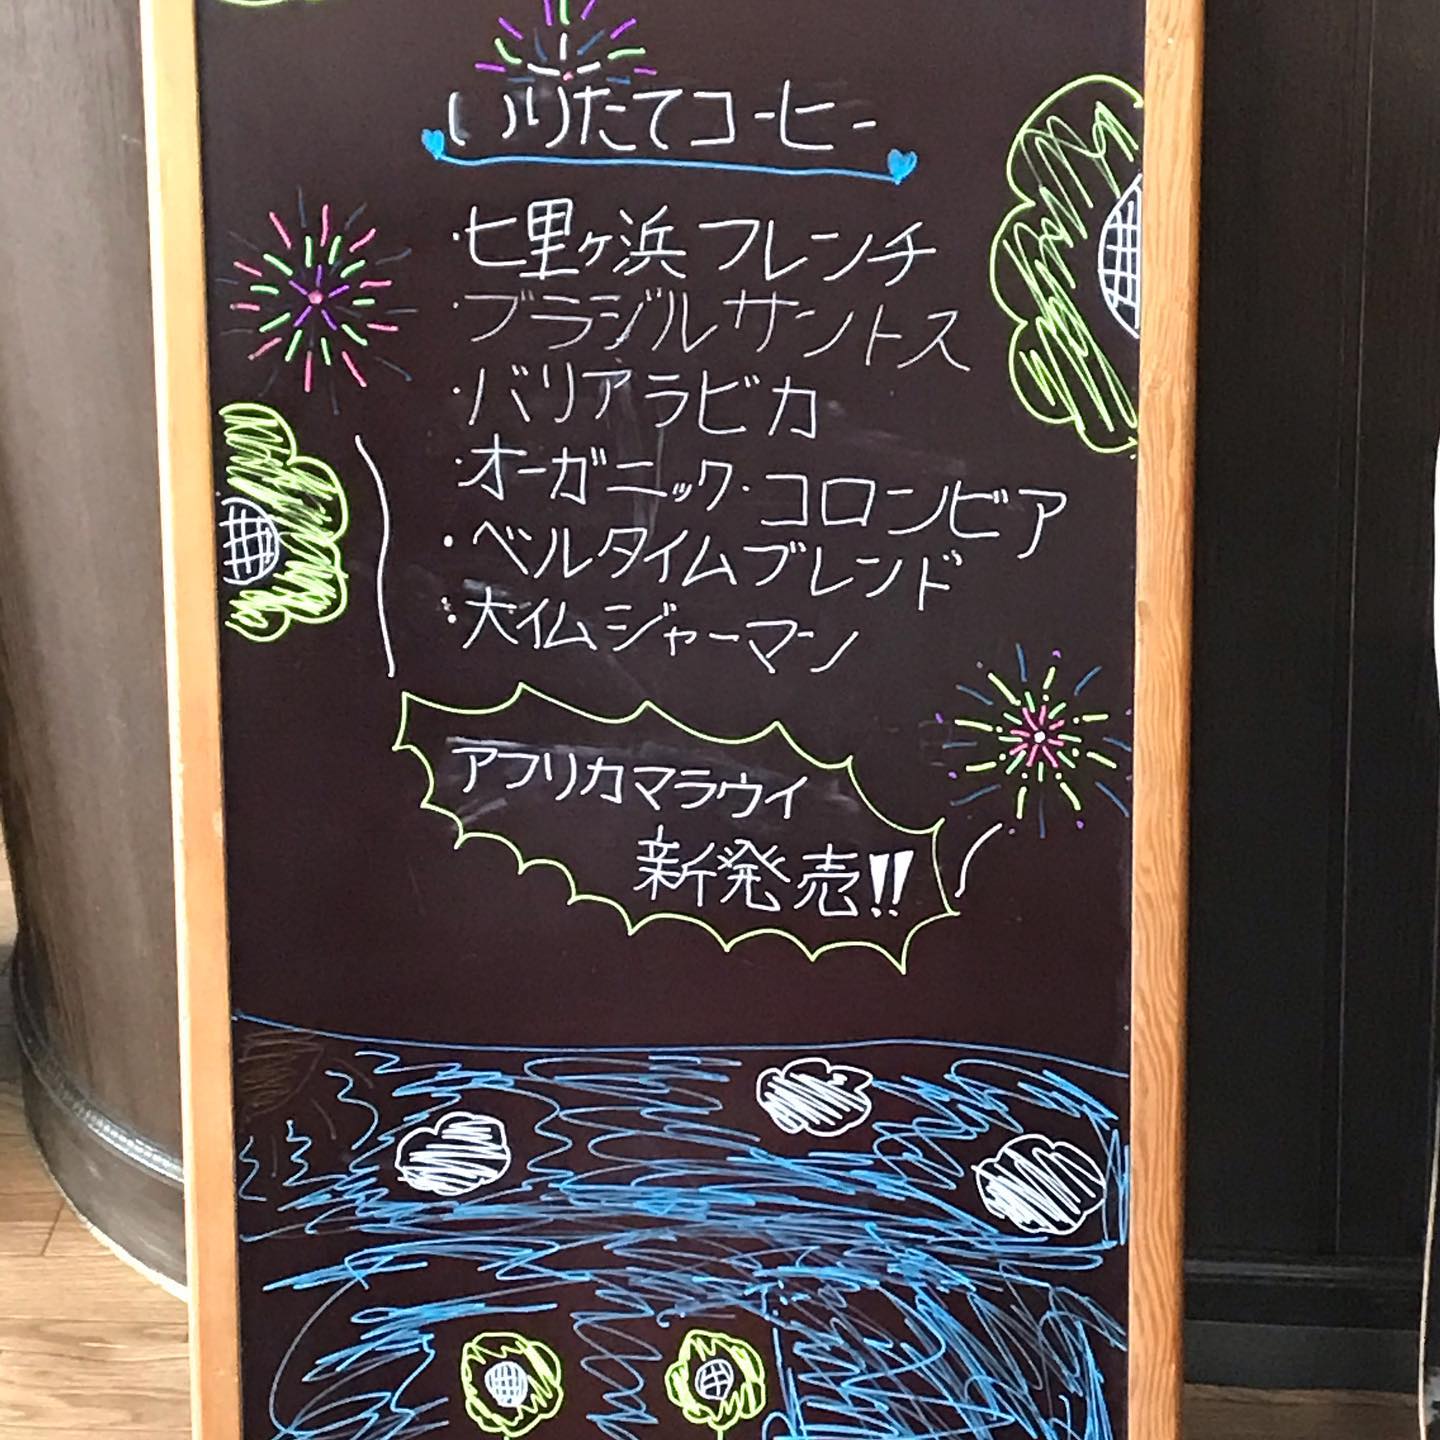 いりたてコーヒー
・七里ヶ浜フレンチ
・ブラジルサントス
・バリアラビカ
・オーガニック・コロンビア
・ベルタイムブレンド
・大仏ジャーマン
アフリカマラウイ
新発売!!